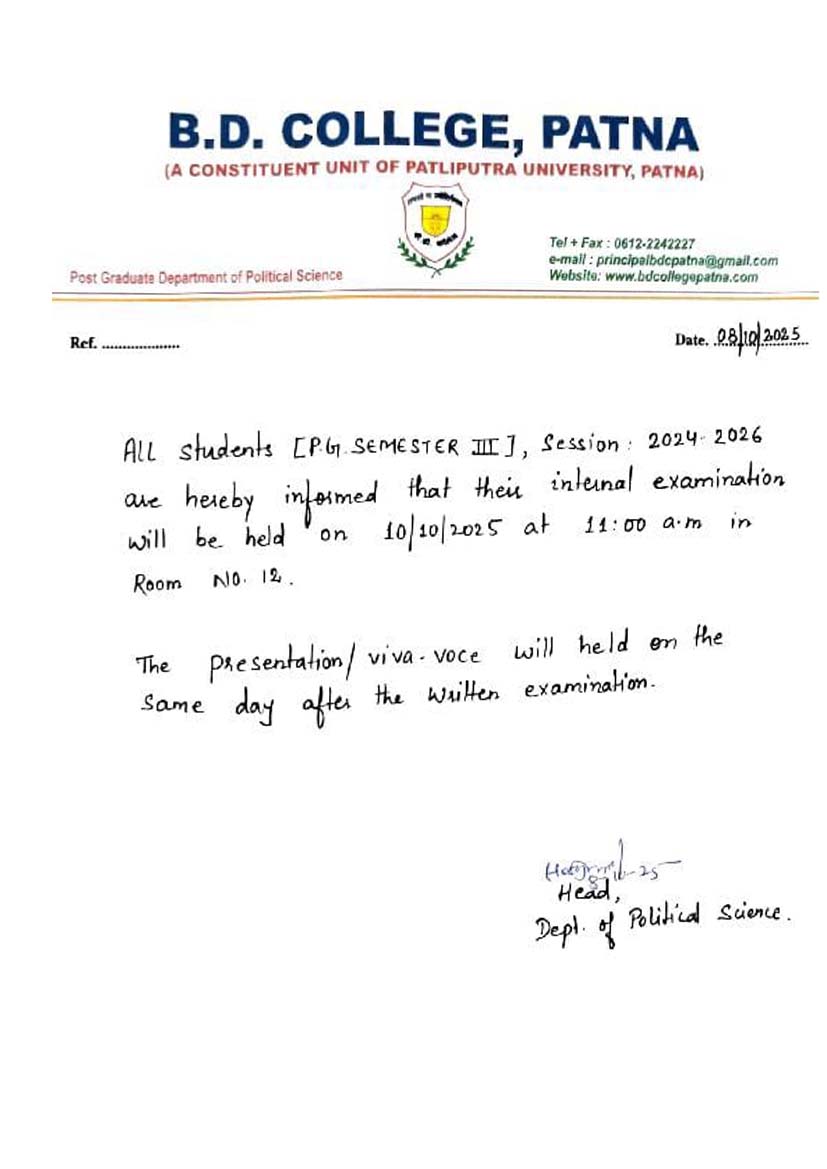 B.D. COLLEGE, PATNA
(A CONSTITUENT UNIT OF PATLIPUTRA UNIVERSITY, PATNA)
Tel + Fax : 0612-2242227
e-mail : principalbdcpatna@gmail.com
Post Graduate Department of Political Science
Website: www.bdcollegepatna.com
Ref. ...................
Date. 08/10/2025
All students [P.G. SEMESTER III], Session: 2024-2026
are hereby informed that their internal examination
will be held on 10/10/2025 at 11:00 a.m in
Room No. 12.
The presentation/viva-voce will held on the
same day after the written examination.
Head,
Dept. of Political Science.